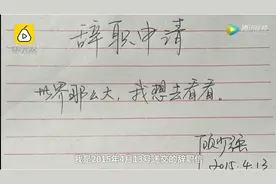 梨视频
腾讯视频
辞职申请
世界那么大，我想去看看。
顾少强
2015.4.13
我是2015年4月13号递交的辞职信